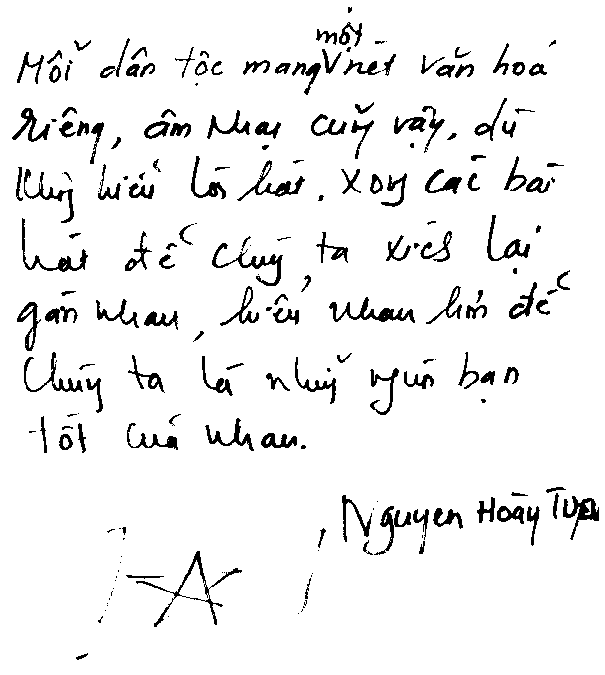 Mỗi dân tộc mang một nét văn hoá
riêng, âm nhạc cũng vậy, dù
không hiểu lời hát. Xong các bài
hát để chúng ta xích lại
gần nhau, hiểu nhau hơn để
chúng ta là những người bạn
tốt của nhau.
Nguyen Hoàng